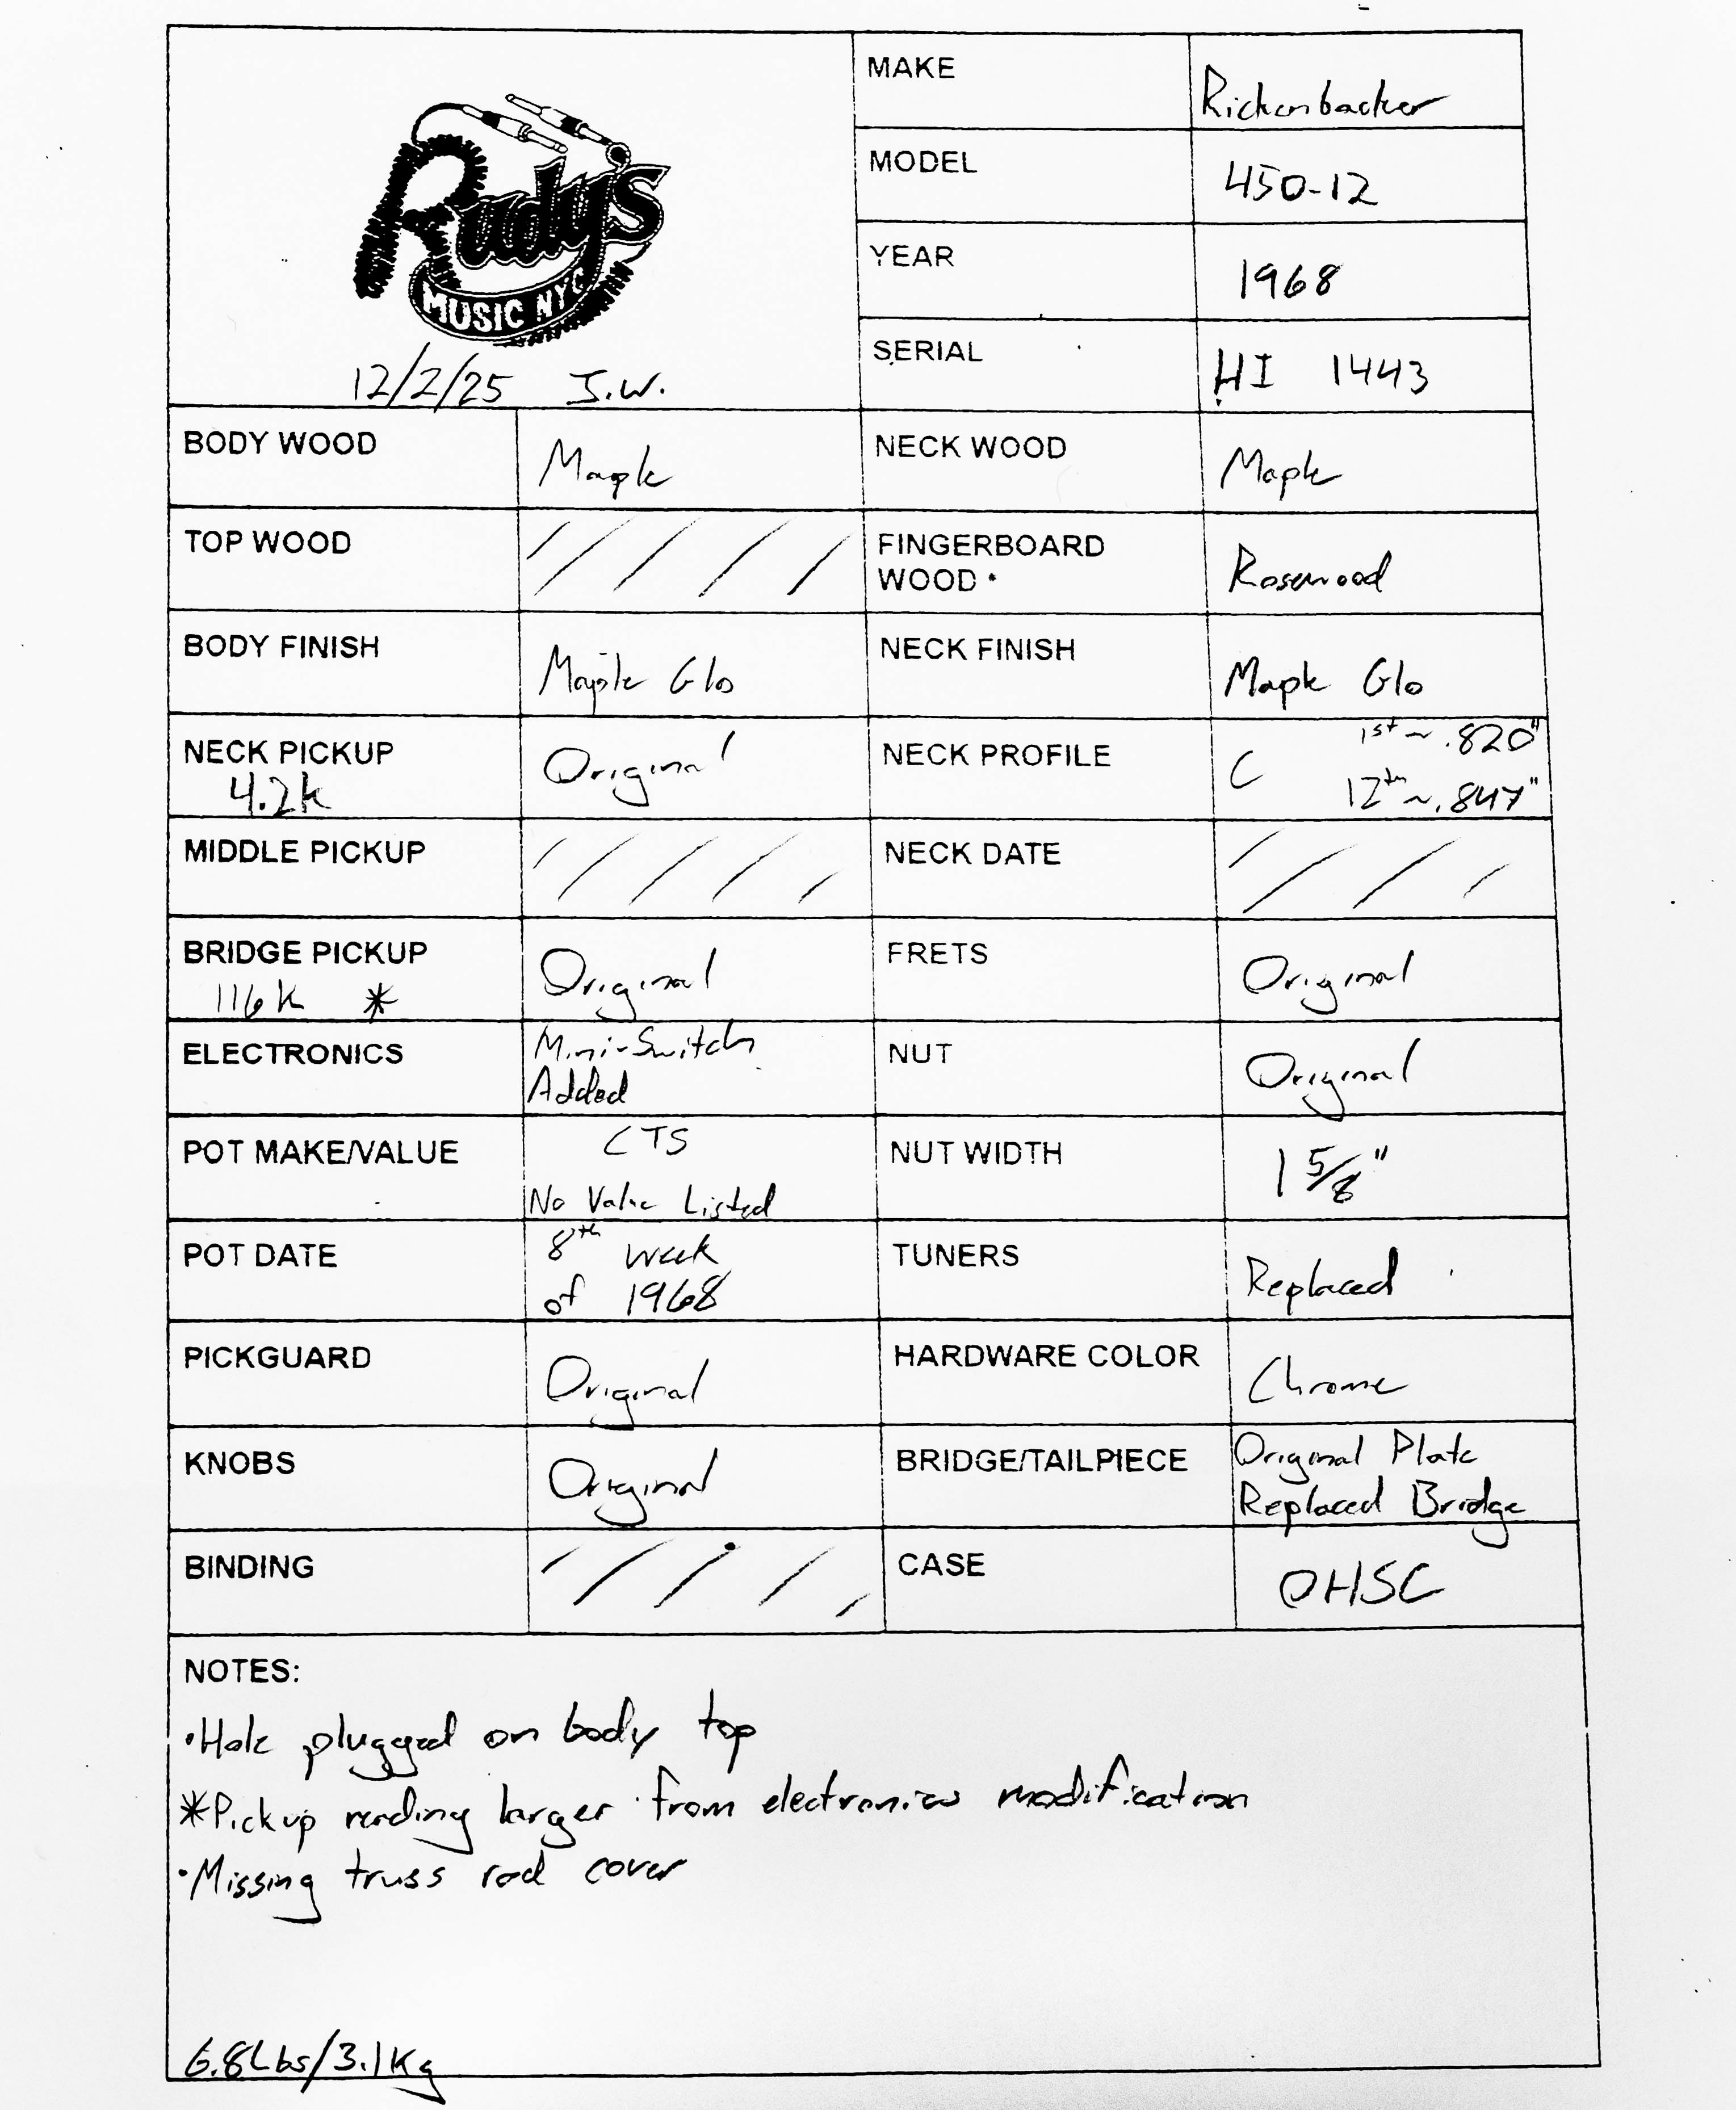 Rudy's
MUSIC NYC
12/2/25 J.W.
MAKE Rickenbacker
MODEL 450-12
YEAR 1968
SERIAL HI 1443
BODY WOOD Maple
NECK WOOD Maple
TOP WOOD
FINGERBOARD
WOOD Rosewood
BODY FINISH Maple Glo
NECK FINISH Maple Glo
NECK PICKUP Original
4.2k
NECK PROFILE C 1st ~ .820"
12th ~ .847"
MIDDLE PICKUP
NECK DATE
BRIDGE PICKUP Original
116k *
FRETS Original
ELECTRONICS Mini-Switch
Added
NUT Original
POT MAKE/VALUE CTS
No Value Listed
NUT WIDTH 1 5/8"
POT DATE 8th week
of 1968
TUNERS Replaced
PICKGUARD Original
HARDWARE COLOR Chrome
KNOBS Original
BRIDGE/TAILPIECE Original Plate
Replaced Bridge
BINDING
CASE OHSC
NOTES:
•Hole plugged on body top
*Pickup reading larger from electronics modification
•Missing truss rod cover
6.8Lbs/3.1Kg